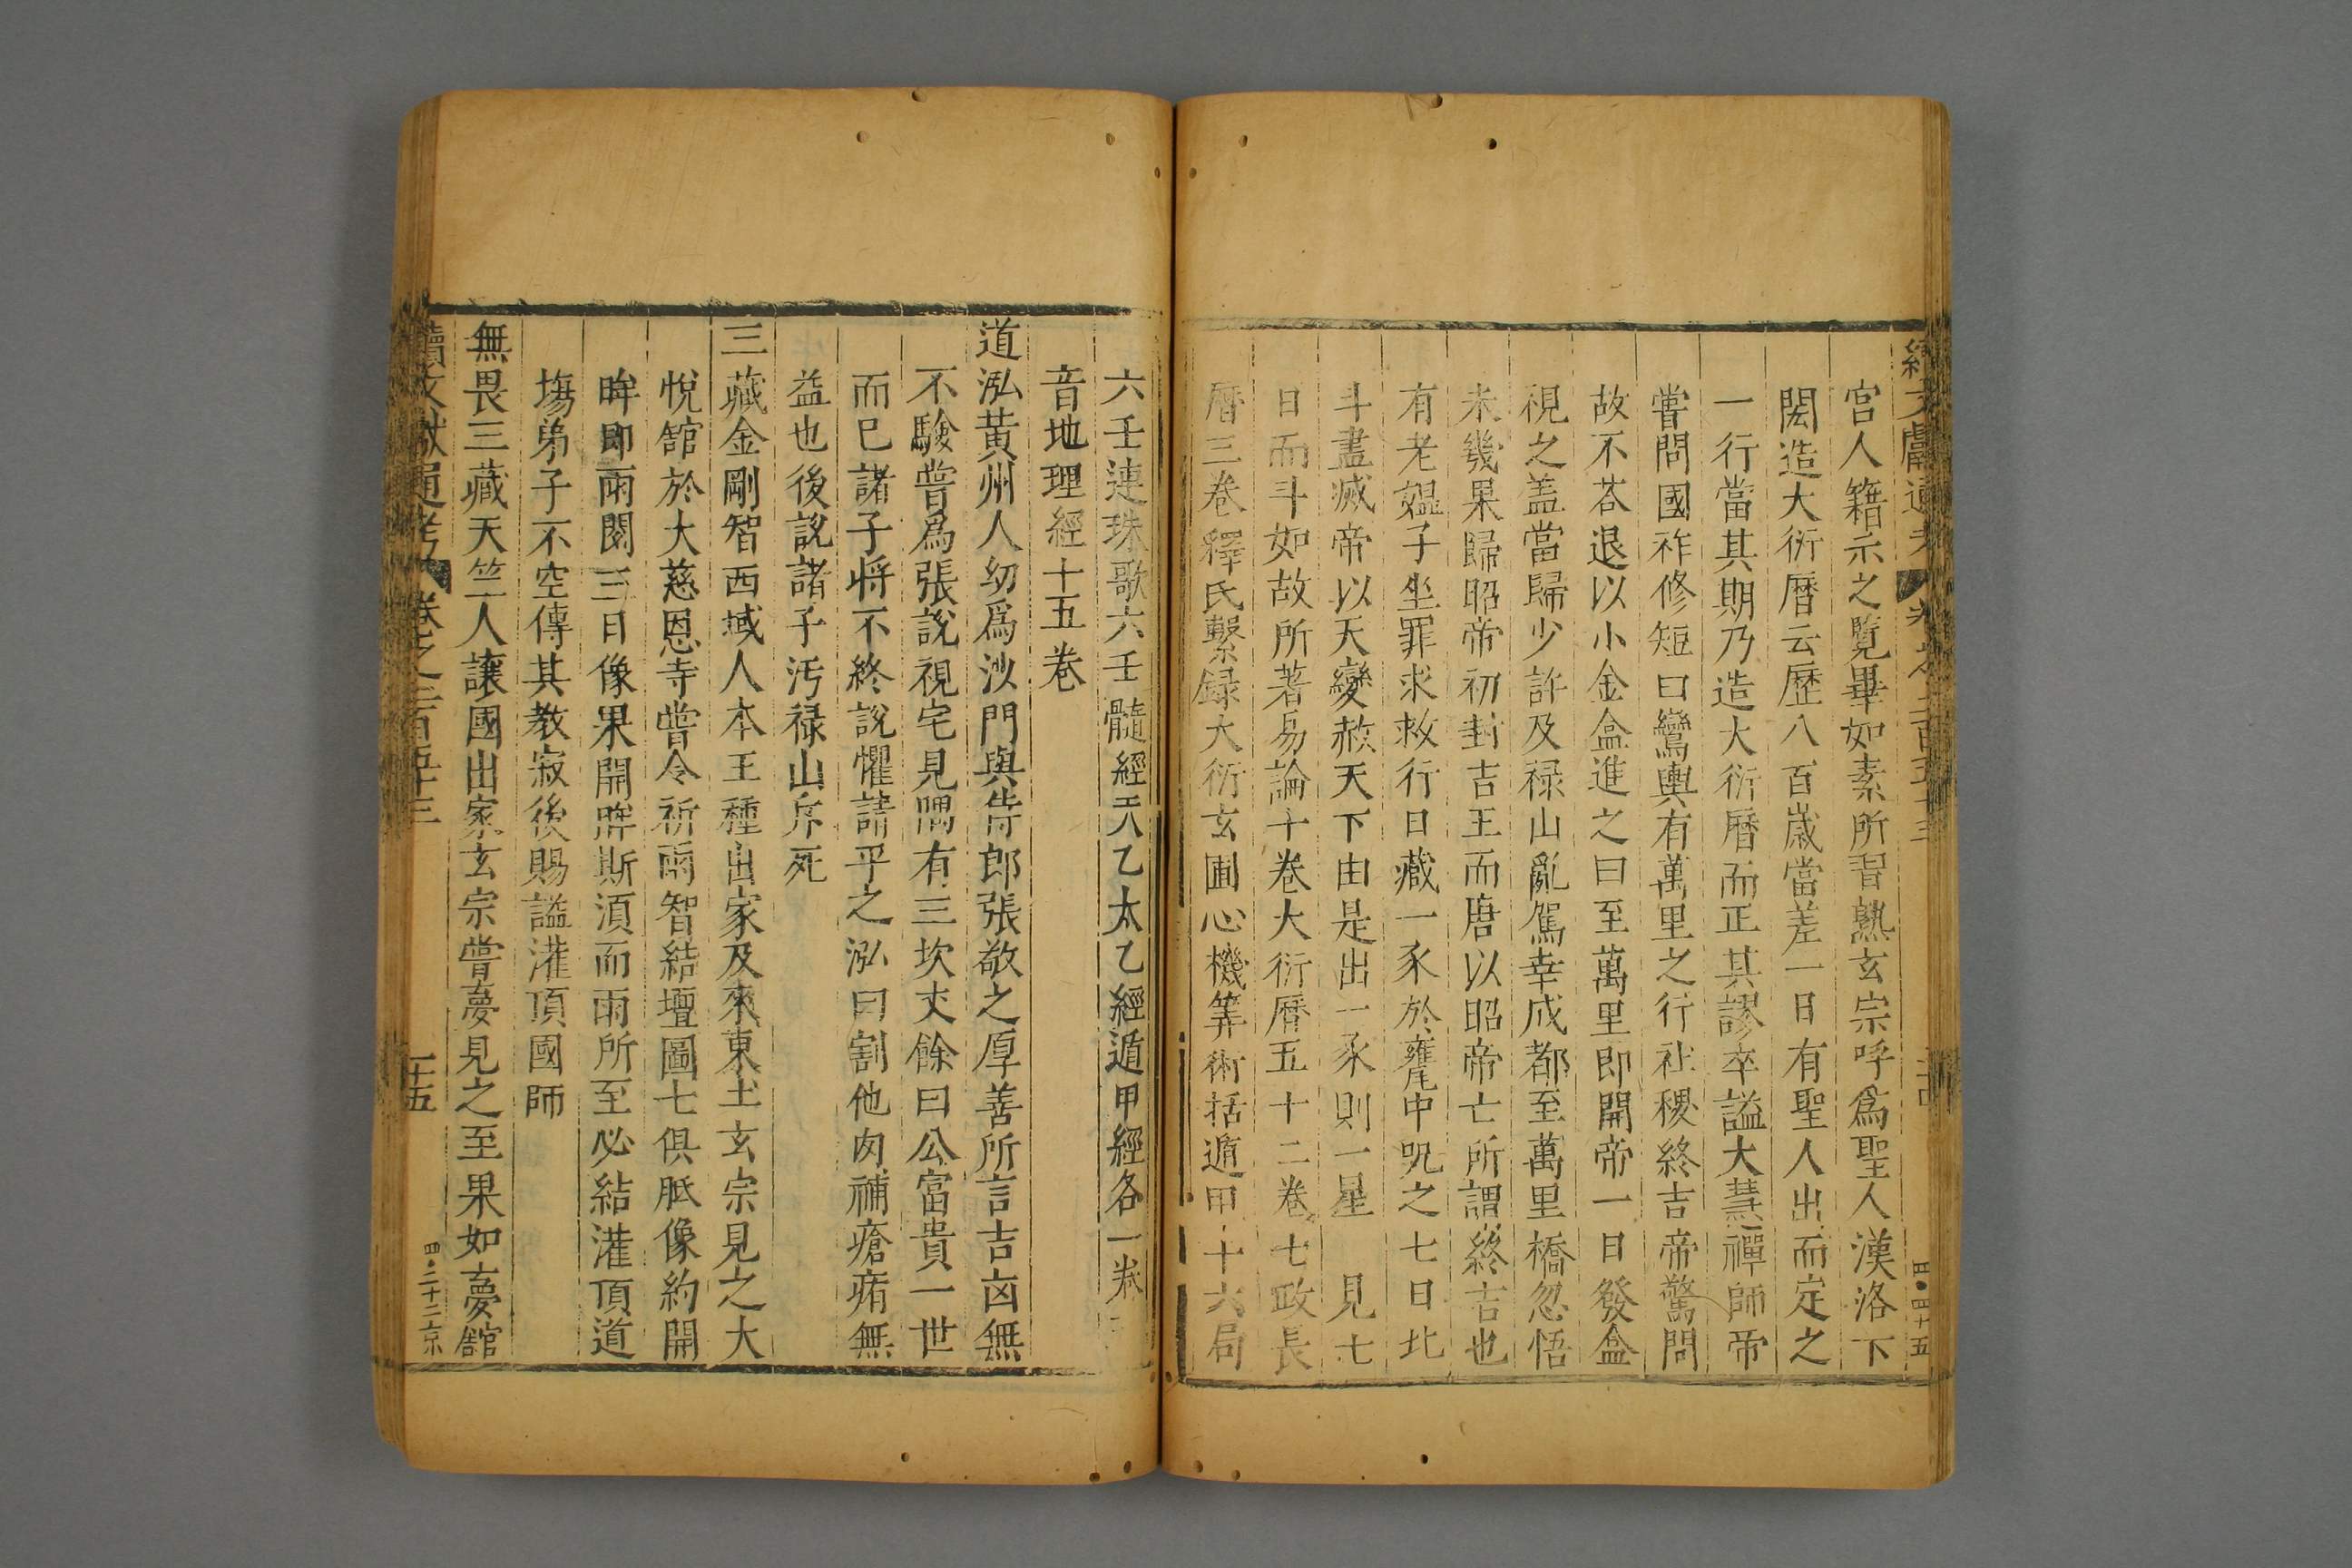 續文獻通考 卷之二百五十三
宮人籍示之覽畢如素所習熟玄宗呼爲聖人漢洛下
閎造大衍曆云歷八百歲當差一日有聖人出而定之
一行當其期乃造大衍曆而正其謬卒謚大慧禪師帝
嘗問國祚修短曰鸞輿有萬里之行社稷終吉帝驚問
故不荅退以小金盒進之曰至萬里即開帝一日發盒
視之盖當歸少許及禄山亂駕幸成都至萬里橋忽悟
未幾果歸昭帝初封吉王而唐以昭帝亡所謂終吉也
有老媪子坐罪求救行曰藏一豕於甕中呪之七日北
斗盡滅帝以天變赦天下由是出一豕則一星見七
日而斗如故所著易論十卷大衍曆五十二卷七政長
曆三卷釋氏繫録大衍玄圖心機筭術括遁甲十六局
六壬連珠歌六壬髓經天乙太乙經遁甲經各一卷
音地理經十五卷
道泓黃州人幼爲沙門與侍郎張敬之厚善所言吉凶無
不驗嘗爲張說視宅見隅有三坎丈餘曰公富貴一世
而已諸子將不終說懼請平之泓曰割他肉補瘡痏無
益也後說諸子汚禄山斥死
三藏金剛智西域人本王種出家及來東土玄宗見之大
悅舘於大慈恩寺嘗令祈雨智結壇圖七俱胝像約開
眸即雨閱三日像果開眸斯須而雨所至必結灌頂道
塲弟子不空傳其教寂後賜謚灌頂國師
無畏三藏天竺人讓國出家玄宗嘗夢見之至果如夢舘
續文獻通考 卷之二百五十三
二十五
四·二十二 京